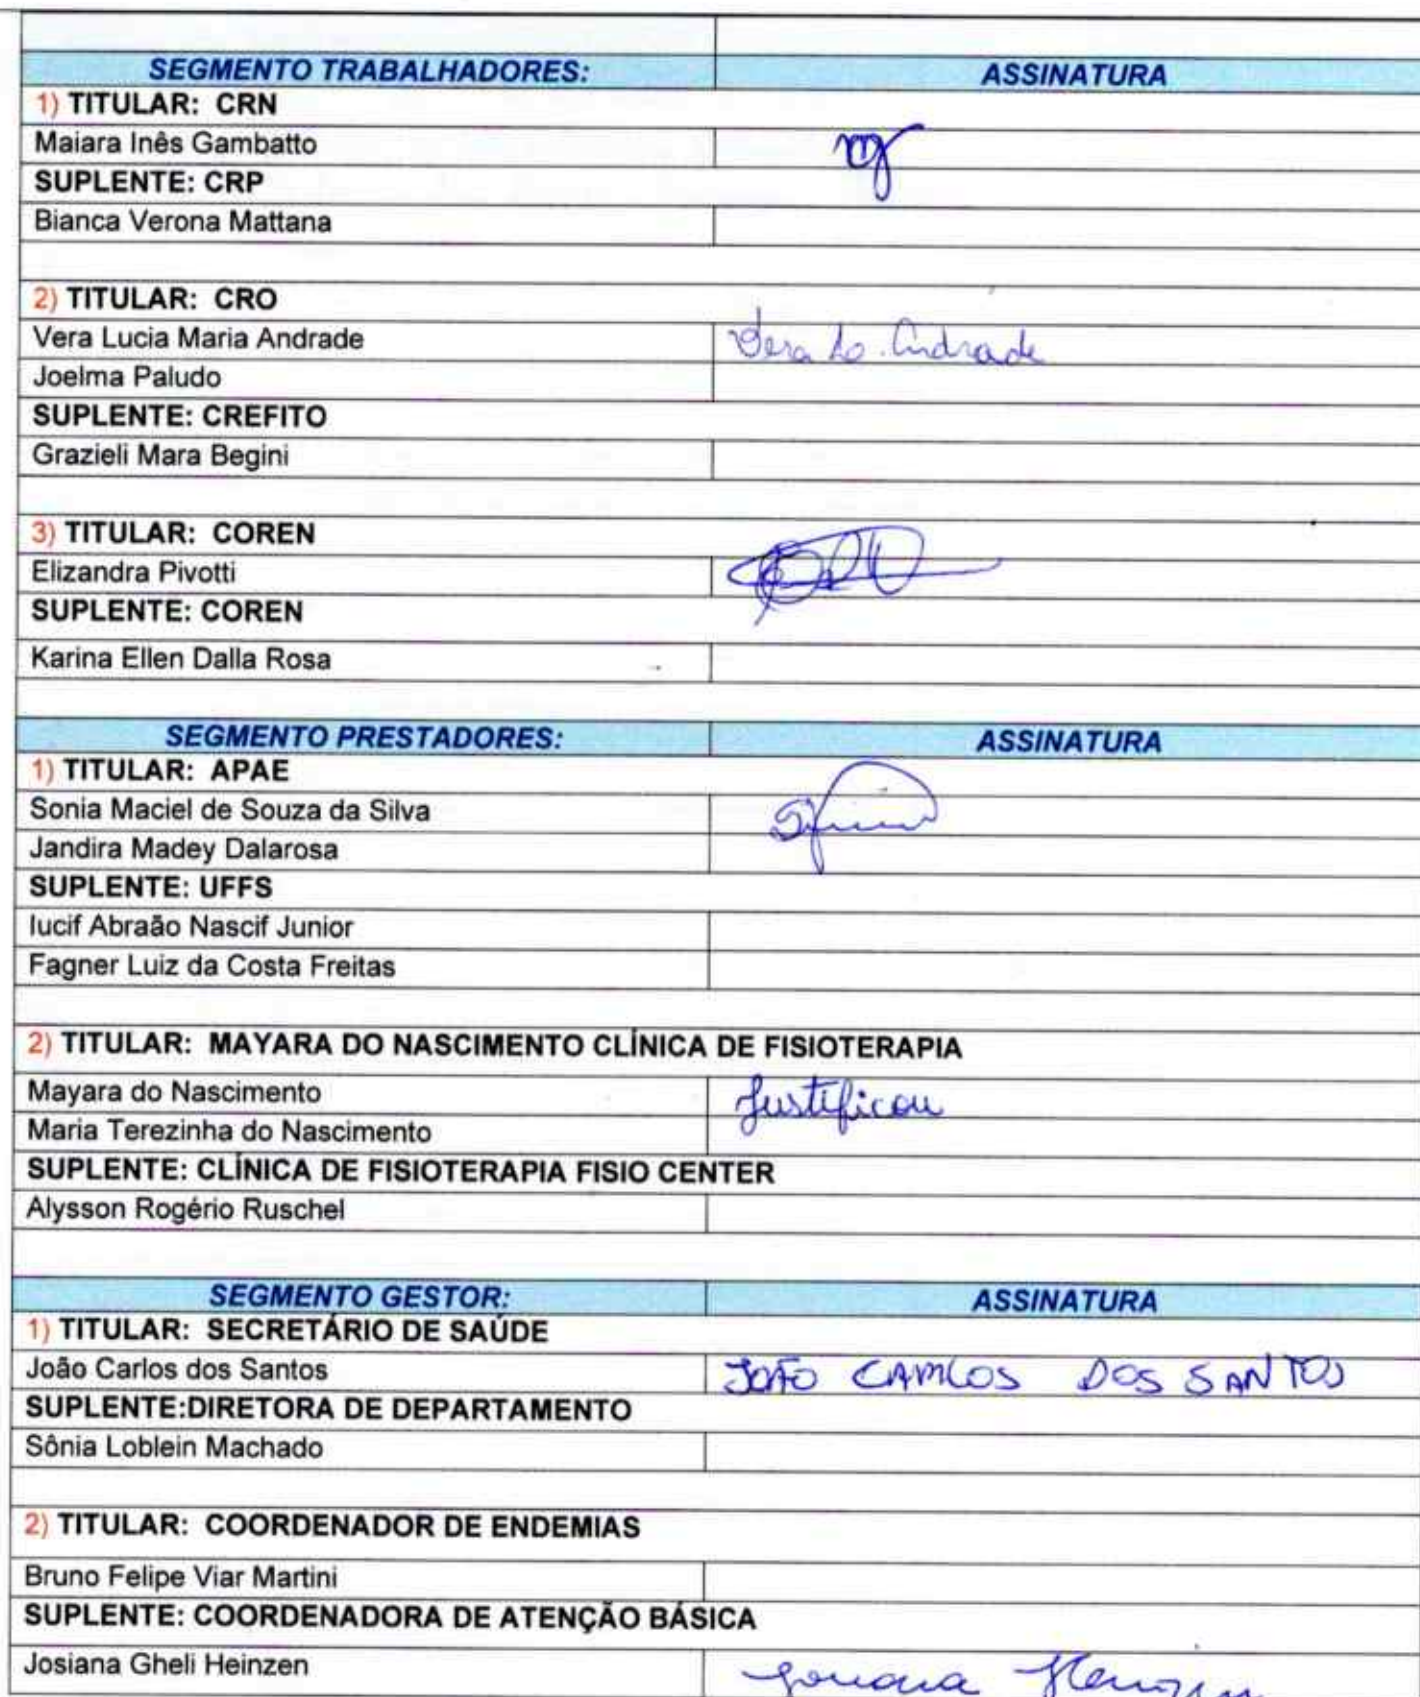 SEGMENTO TRABALHADORES: ASSINATURA
1) TITULAR: CRN
Maiara Inês Gambatto
SUPLENTE: CRP
Bianca Verona Mattana
2) TITULAR: CRO
Vera Lucia Maria Andrade Vera Lo. Andrade
Joelma Paludo
SUPLENTE: CREFITO
Grazieli Mara Begini
3) TITULAR: COREN
Elizandra Pivotti
SUPLENTE: COREN
Karina Ellen Dalla Rosa
SEGMENTO PRESTADORES: ASSINATURA
1) TITULAR: APAE
Sonia Maciel de Souza da Silva
Jandira Madey Dalarosa
SUPLENTE: UFFS
Iucif Abraão Nascif Junior
Fagner Luiz da Costa Freitas
2) TITULAR: MAYARA DO NASCIMENTO CLÍNICA DE FISIOTERAPIA
Mayara do Nascimento Justificou
Maria Terezinha do Nascimento
SUPLENTE: CLÍNICA DE FISIOTERAPIA FISIO CENTER
Alysson Rogério Ruschel
SEGMENTO GESTOR: ASSINATURA
1) TITULAR: SECRETÁRIO DE SAÚDE
João Carlos dos Santos JOÃO CARLOS DOS SANTOS
SUPLENTE:DIRETORA DE DEPARTAMENTO
Sônia Loblein Machado
2) TITULAR: COORDENADOR DE ENDEMIAS
Bruno Felipe Viar Martini
SUPLENTE: COORDENADORA DE ATENÇÃO BÁSICA
Josiana Gheli Heinzen